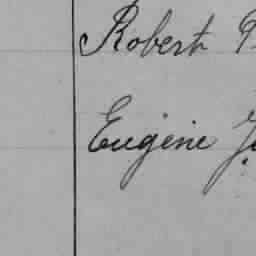 Robert
Eugene